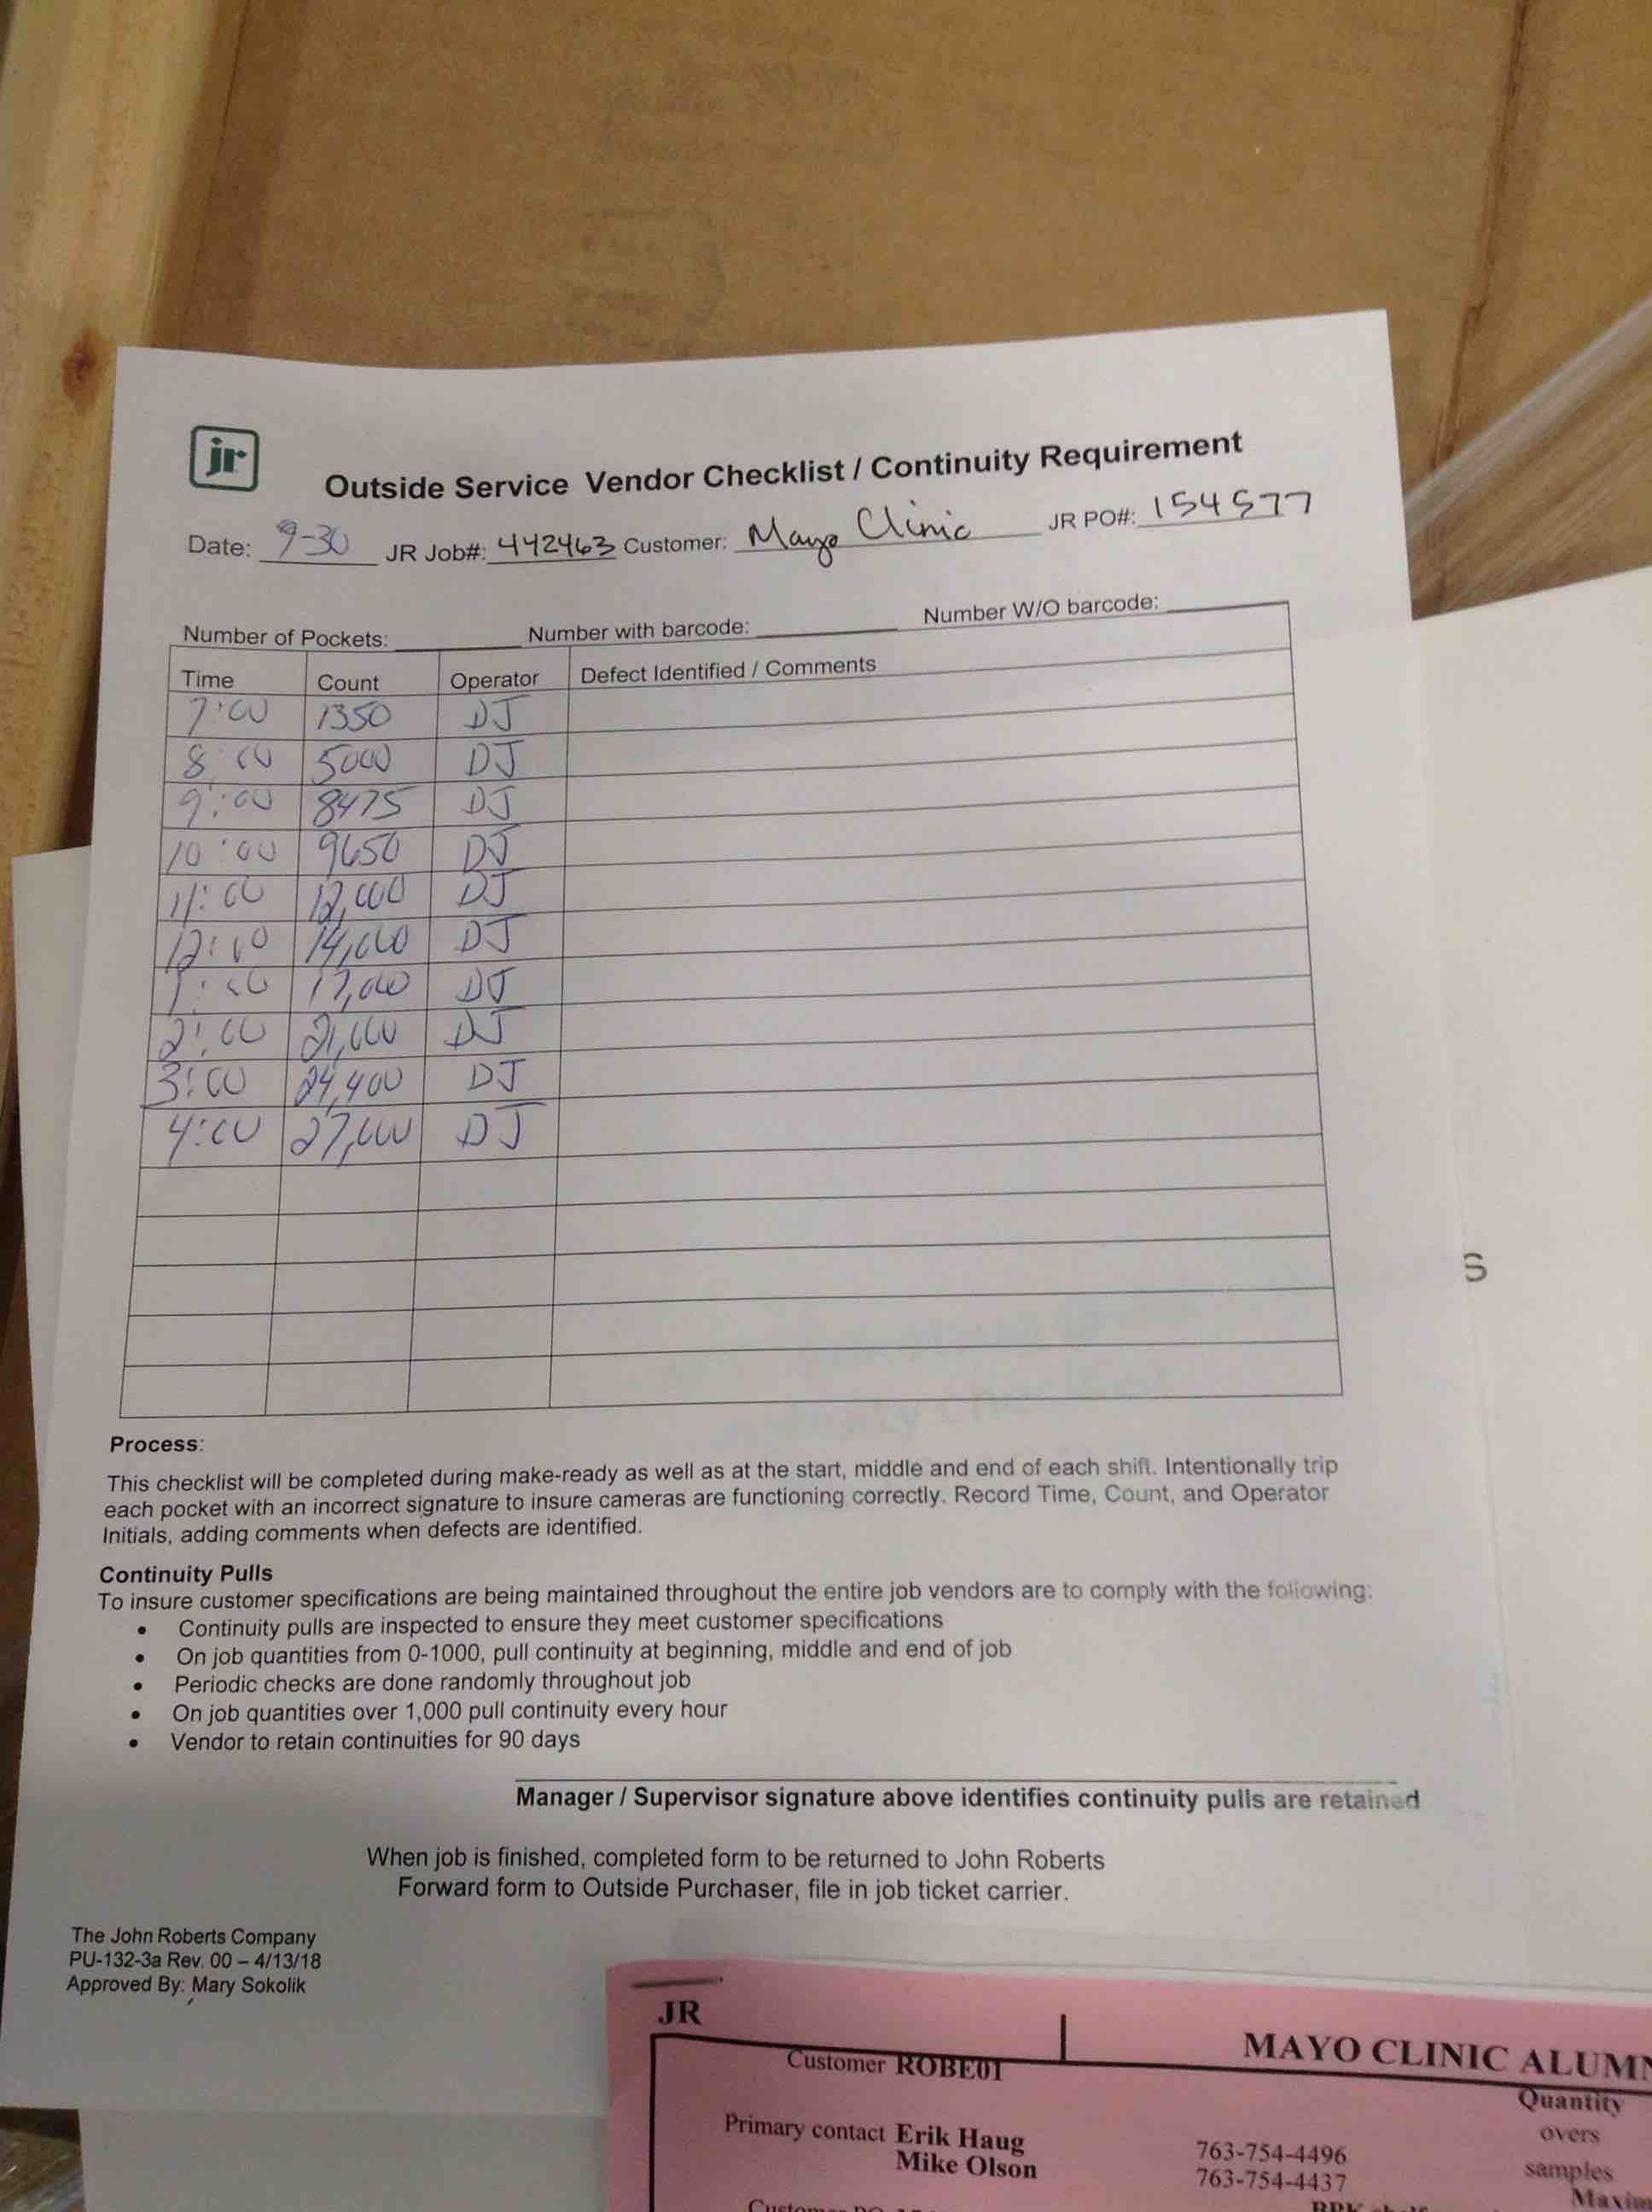 jr
Outside Service Vendor Checklist / Continuity Requirement
Date: 9-30 JR Job#: 442463 Customer: Mayo Clinic JR PO#: 154577
Number of Pockets: Number with barcode: Number W/O barcode:
Time Count Operator Defect Identified / Comments
7:00 1350 DJ
8:00 5000 DJ
9:00 8475 DJ
10:00 9650 DJ
11:00 12,000 DJ
12:00 14,000 DJ
1:00 17,000 DJ
2:00 21,000 DJ
3:00 24,400 DJ
4:00 27,000 DJ
Process:
This checklist will be completed during make-ready as well as at the start, middle and end of each shift. Intentionally trip
each pocket with an incorrect signature to insure cameras are functioning correctly. Record Time, Count, and Operator
Initials, adding comments when defects are identified.
Continuity Pulls
To insure customer specifications are being maintained throughout the entire job vendors are to comply with the following:
• Continuity pulls are inspected to ensure they meet customer specifications
• On job quantities from 0-1000, pull continuity at beginning, middle and end of job
• Periodic checks are done randomly throughout job
• On job quantities over 1,000 pull continuity every hour
• Vendor to retain continuities for 90 days
Manager / Supervisor signature above identifies continuity pulls are retained
When job is finished, completed form to be returned to John Roberts
Forward form to Outside Purchaser, file in job ticket carrier.
The John Roberts Company
PU-132-3a Rev. 00 – 4/13/18
Approved By: Mary Sokolik
S
JR
MAYO CLINIC ALUMN
Customer ROBE01
Quantity
Primary contact Erik Haug 763-754-4496 overs
Mike Olson 763-754-4437 samples